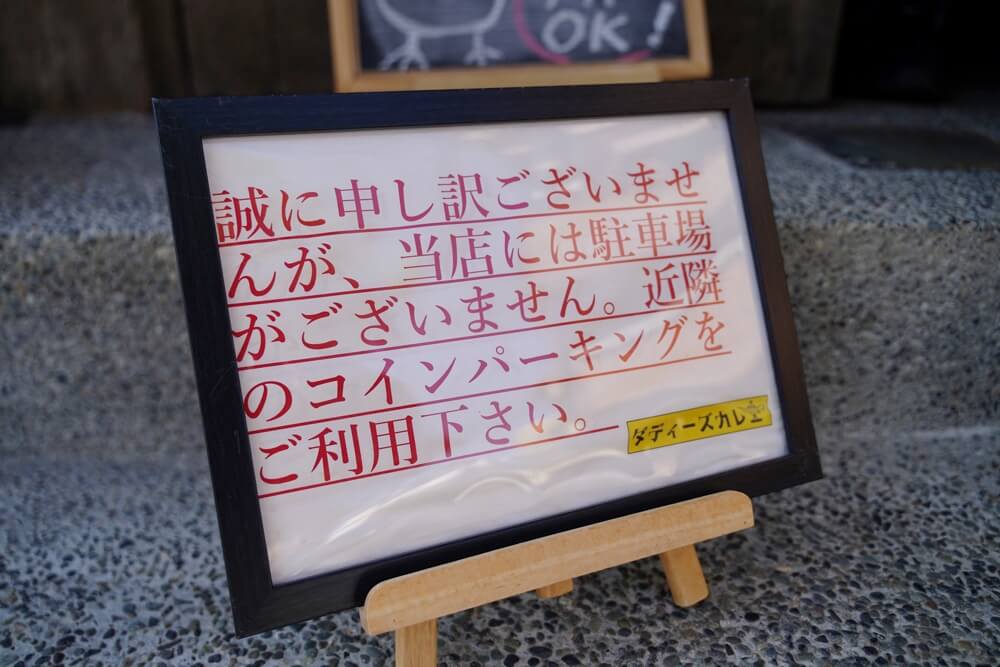 OK!
誠に申し訳ございませ
んが、当店には駐車場
がございません。近隣
のコインパーキングを
ご利用下さい。
ダディーズカレー